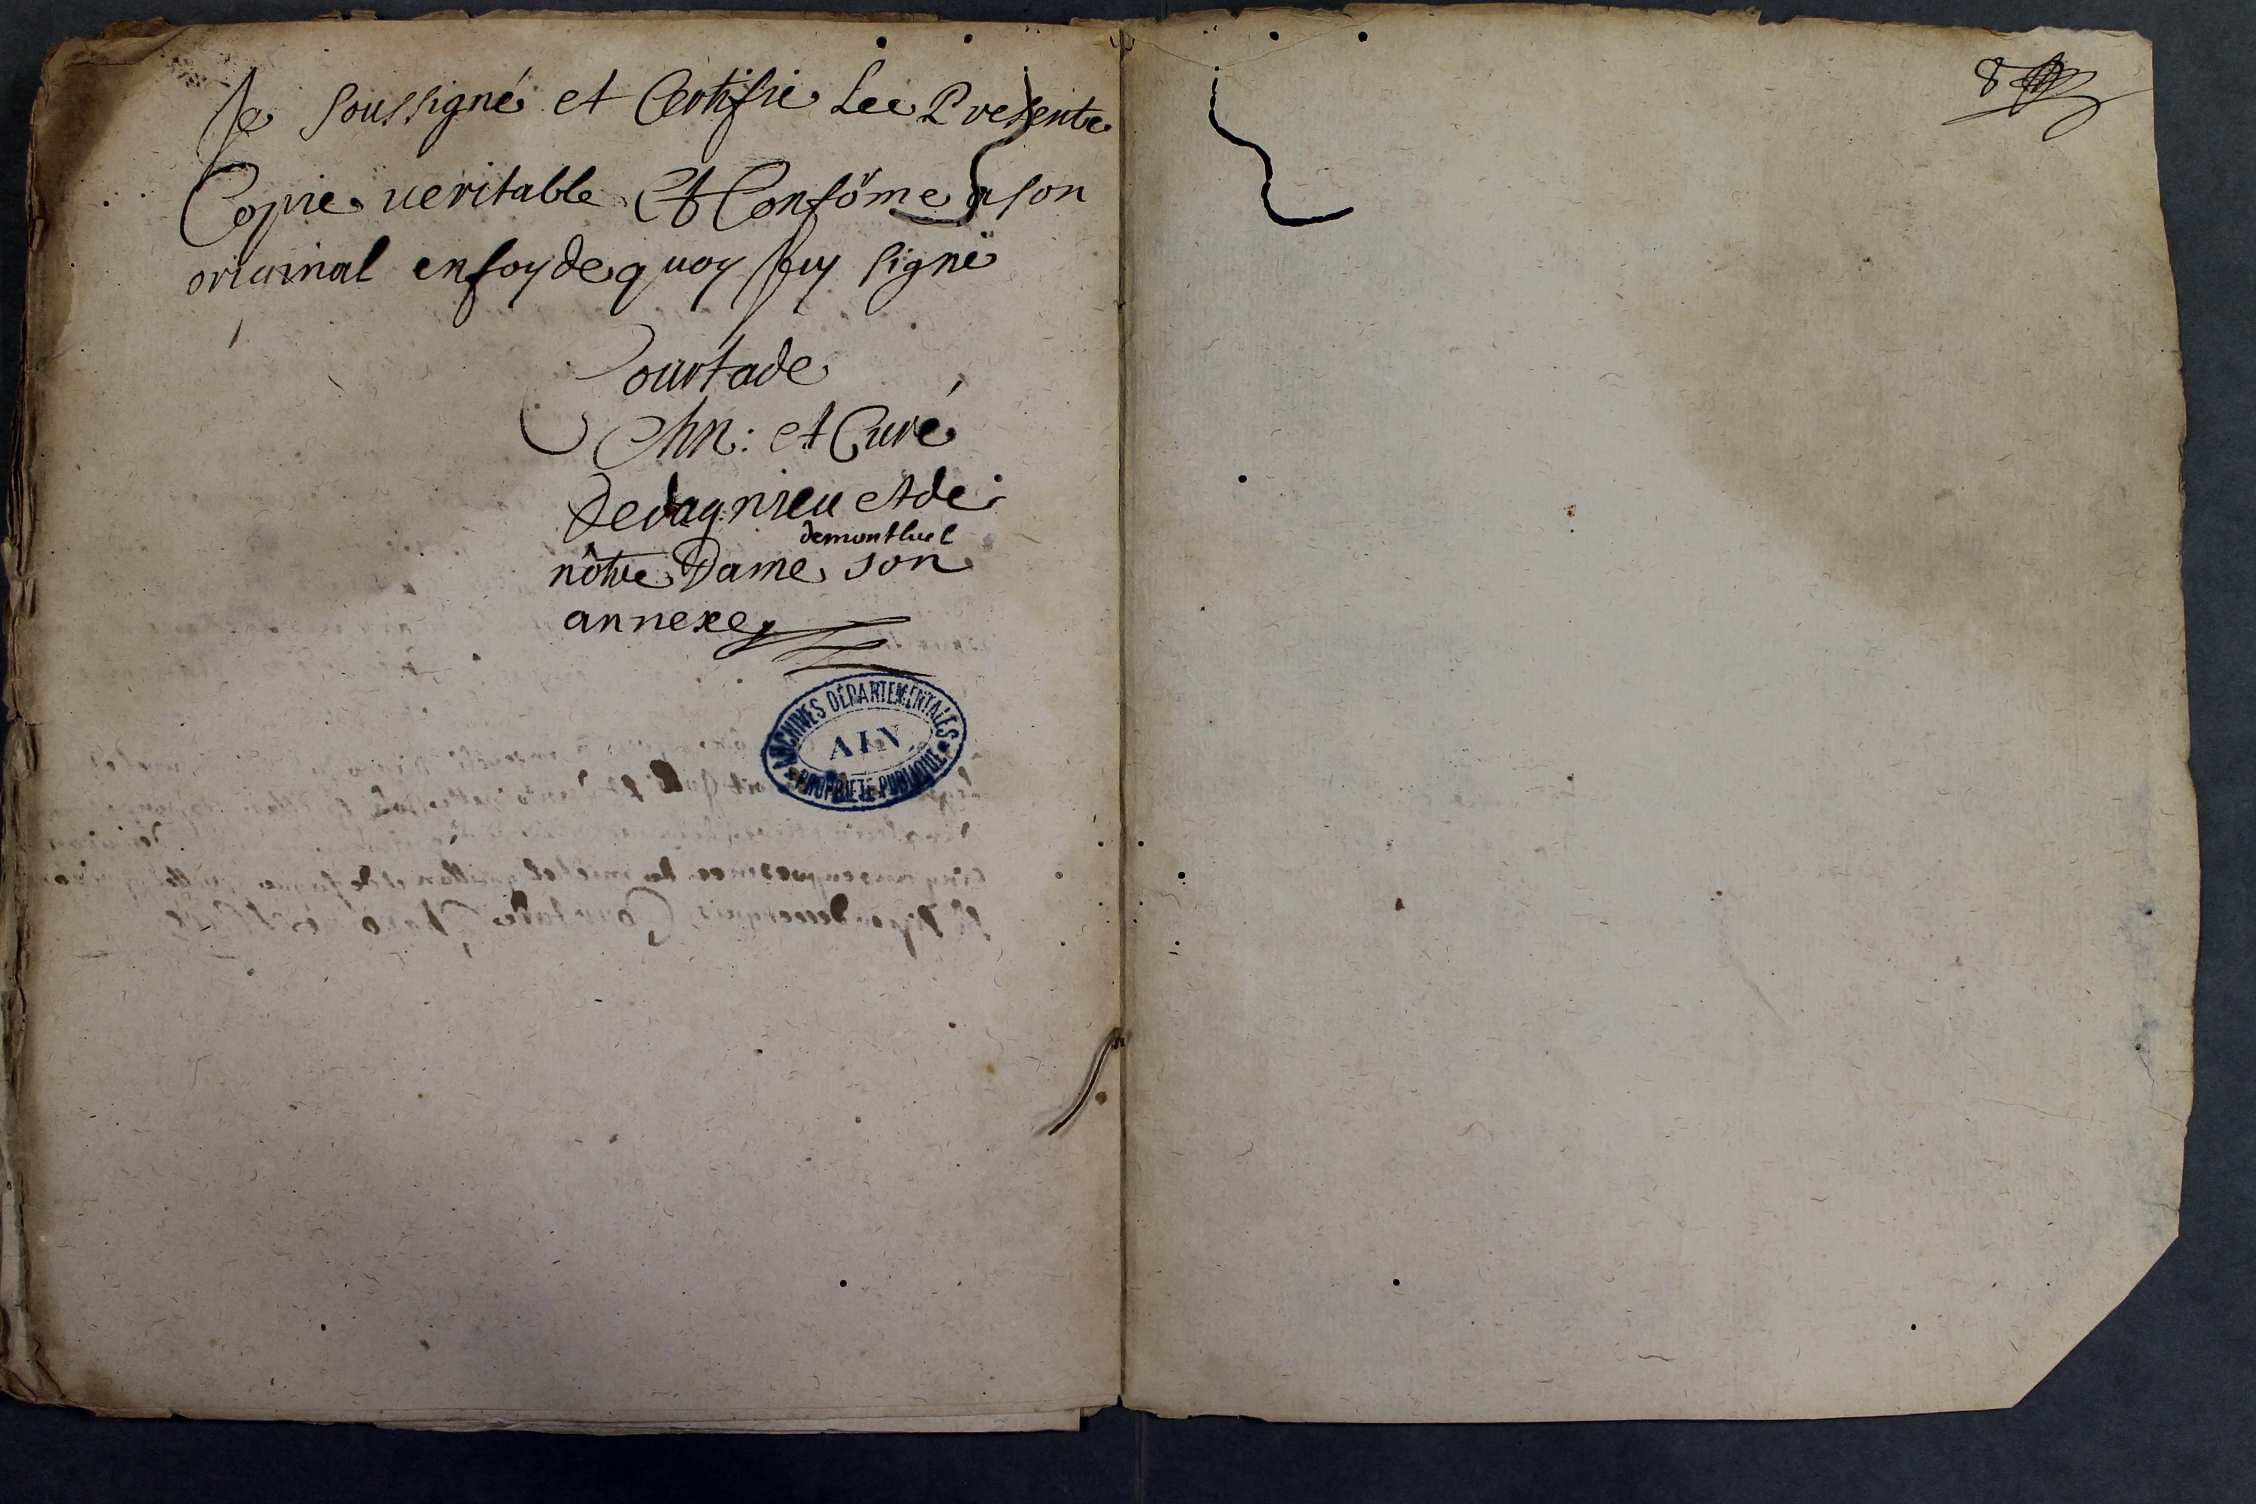 Je soussigné et Certifie Lee Presente
Copie veritable Et Confôme a son
original en foy de quoy Jay signé
Courtade
Chn: et Curé
De dagnieu et de
demontluel
nôtre Dame son
annexe
ARCHIVES DÉPARTEMENTALES
AIN
PROPRIÉTÉ PUBLIQUE
8